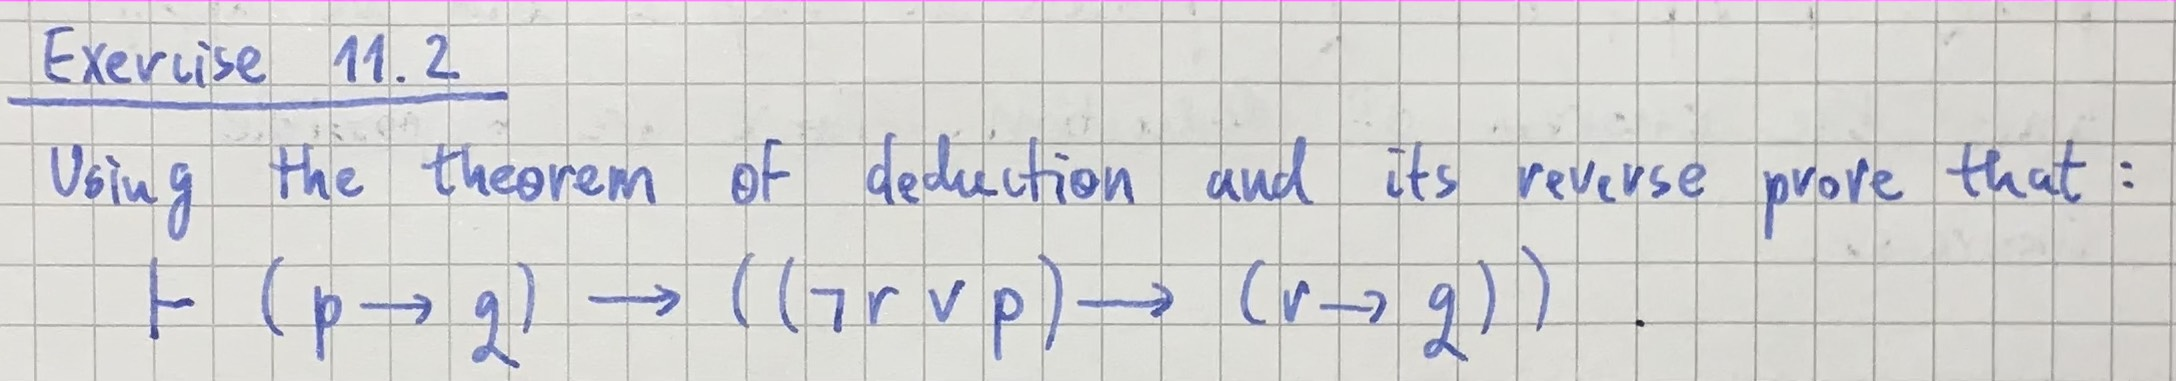 Exercise 11.2
Using the theorem of deduction and its reverse prove that:
⊢ (p → q) → ((¬r ∨ p) → (r → q)) .